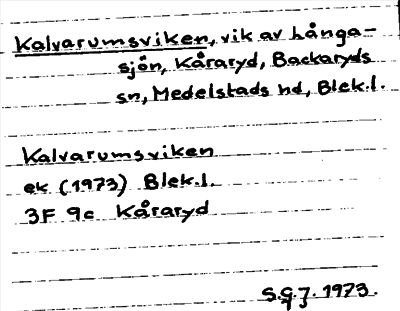 Kalvarumsviken, vik av Långa-
sjön, Kåraryd, Backaryds
sn, Medelstads hd, Blek.l.
Kalvarumsviken
ek (1973) Blek.l.
3F 9c Kåraryd
S.G.J. 1973.